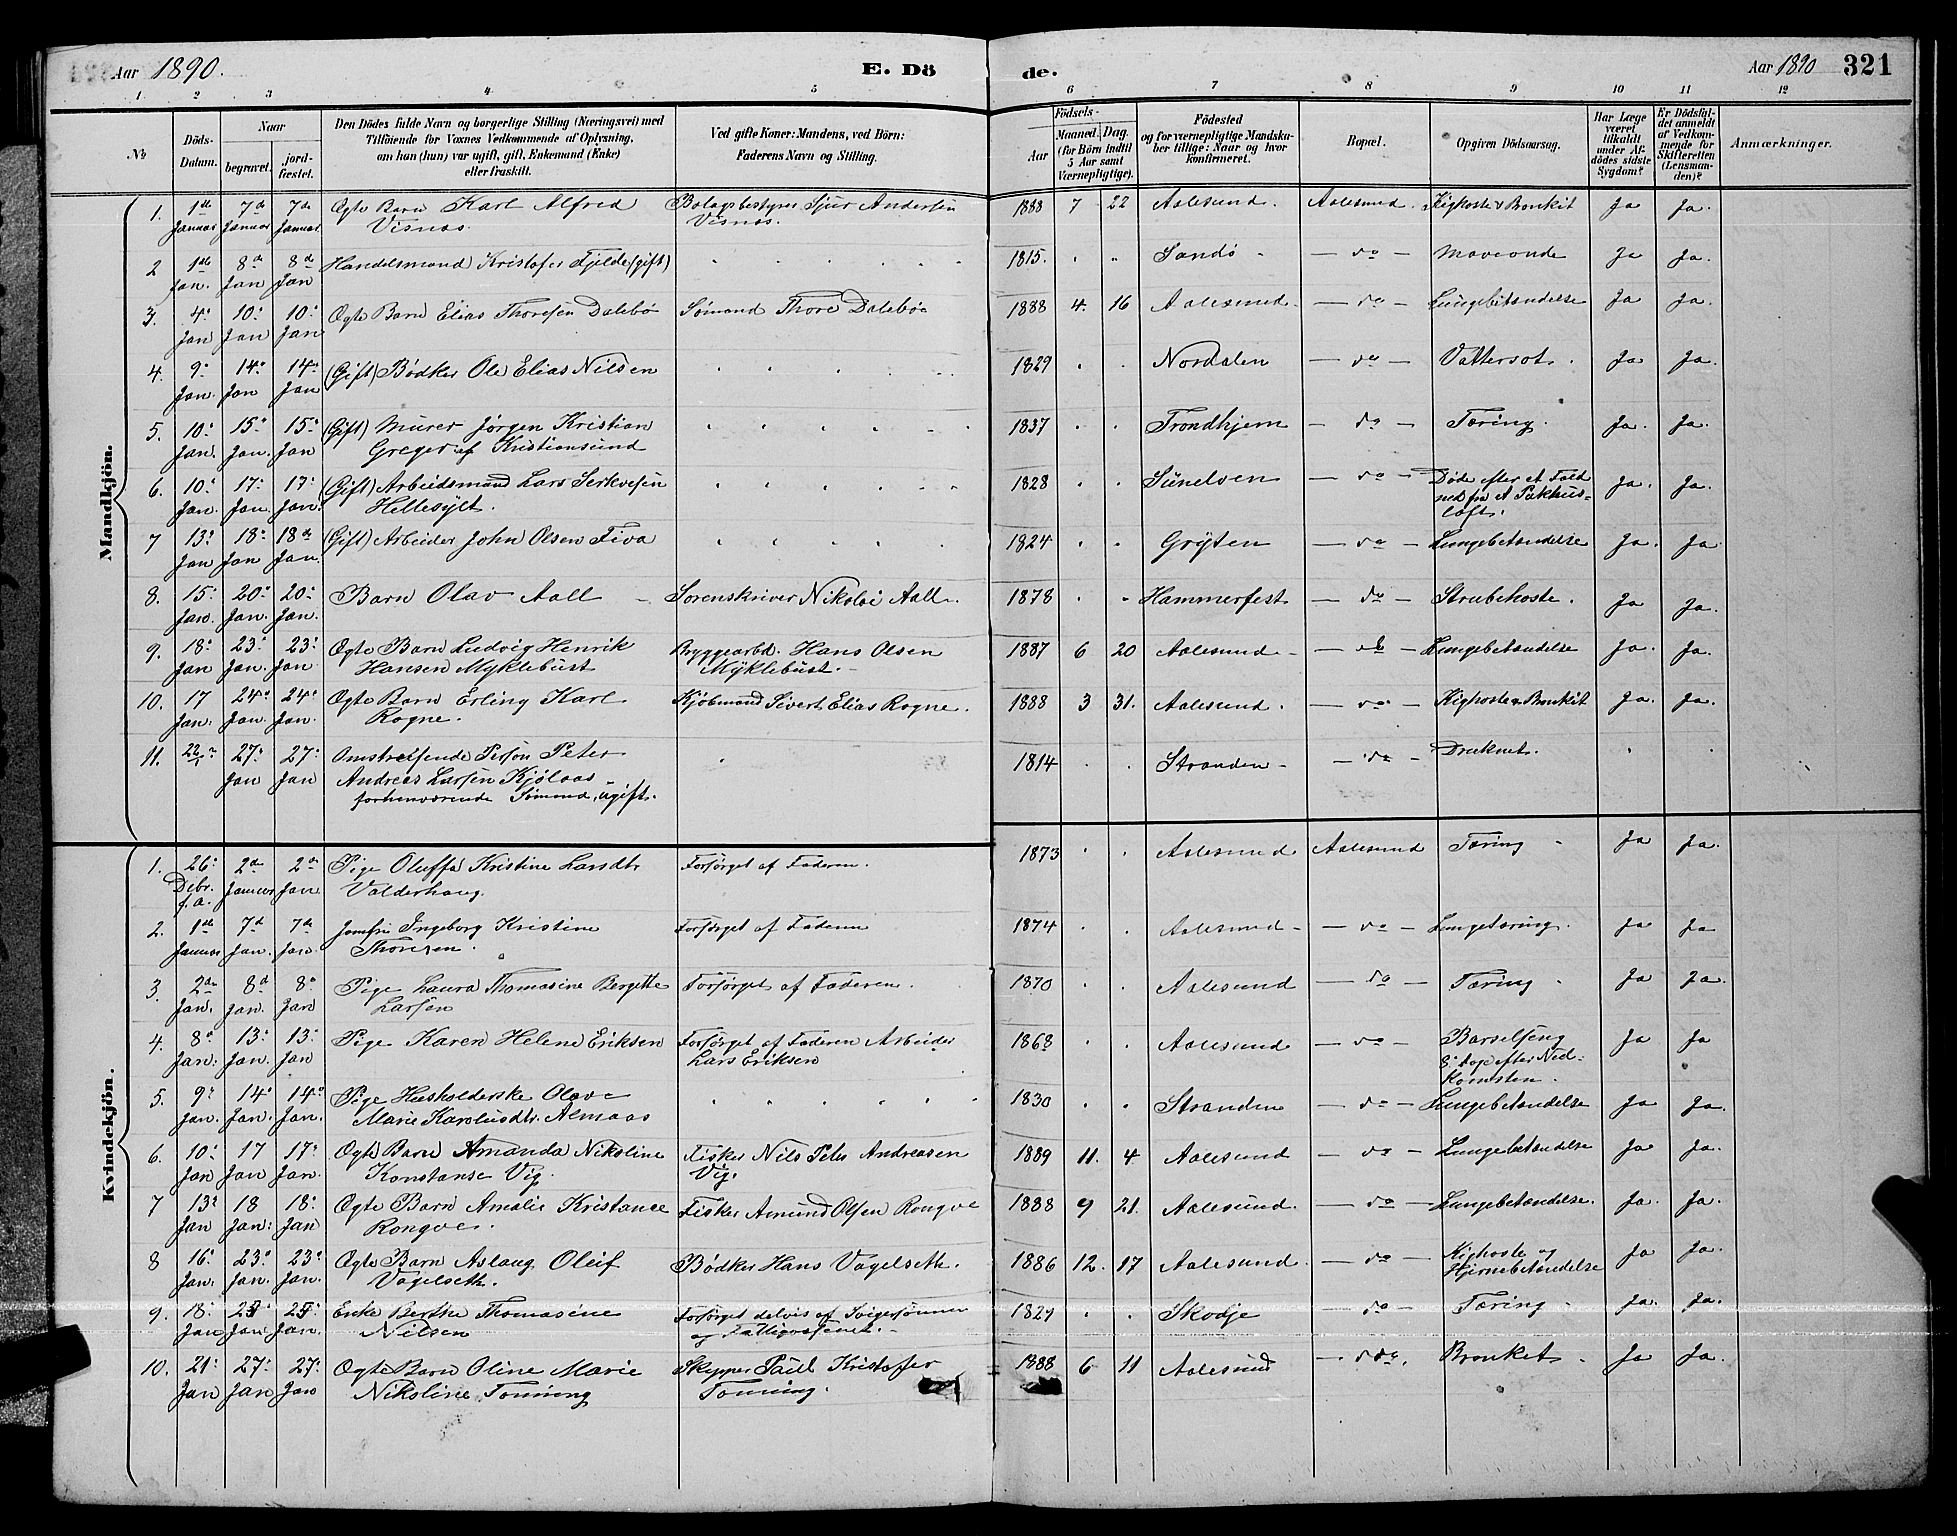 Aar 1890.
E. Dö
de.
Aar 1890
321
1 2 3 4 5 6 7 8 9 10 11 12
No
Döds-Datum.
Naar
begravet.
jord-fæstet.
Den Dödes fulde Navn og borgerlige Stilling (Næringsvei) med
Tilföiende for Voxnes Vedkommende af Oplysning,
om han (hun) var ugift, gift, Enkemand (Enke)
eller fraskilt.
Ved gifte Koner: Mandens, ved Börn:
Faderens Navn og Stilling.
Födsels-
Aar
Maaned. Dag.
(for Börn indtil
5 Aar samt
Værnepligtige).
Födested
og for værnepligtige Mandska-
ber tillige: Naar og hvor
konfirmeret.
Bopæl.
Opgiven Dödsaarsag.
Har Læge
været
tilkaldt
under Af-
dödes sidste
Sygdom?
Er Dödsfal-
det anmeldt
af Vedkom-
mende for
Skifteretten
(Lensman-
den)?
Anmærkninger.
Mandkjön.
1. 1ste Januar 7de Januar 7de Januar Ægte Barn Karl Alfred Bolagsbestyrer Sjur Andersen 1888 7 22 Aalesund. Aalesund. Kighoste & Bronkit Ja Ja.
Visnæs. Visnæs.
2 1ste Jan. 8de Jan 8de Jan Handelsmand Kristofer Fjelde (gift) 1815. Sandö - do - Maveonde Ja Ja.
3. 4de Jan 10de Jan 10de Jan Ægte Barn Elias Thoresen Dalebø Sømand Thore Dalebø 1888 4. 16 Aalesund. - do - Lungebetændelse Ja Ja.
4. 9de Jan. 14de Jan 14de Jan (Gift) Bødker Ole Elias Nilsen 1829 Nordalen - do - Vattersot. Ja Ja.
5. 10de Jan. 15de Jan. 15de Jan (Gift) Murer Jørgen Kristian 1837 Trondhjem - do - Tæring. Ja. Ja.
Greger af Kristiansund
6. 10de Jan. 17de Jan. 17de Jan. (Gift) Arbeidsmand Lars 1828 Sunelven - do - Døde efter et Fald Ja. Ja.
Hellesylt. ned fra et Pakhus-
loft.
7 13de Jan 18de Jan 18de Jan. (Gift) Arbeider John Olsen Fiva 1824 Gryten - do - Lungebetændelse Ja. Ja
8. 15de Jan. 20de Jan. 20de Jan. Barn Olav Aall Sorenskriver Nikolai Aall. 1878 Hammerfest - do - Strubehoste. Ja Ja.
9. 18de Jan 23de Jan. 23de Jan Ægte Barn Ludvig Henrik Bryggearbd. Hans Olsen 1887 6 20 Aalesund - do - Lungebetændelse Ja. Ja.
Hansen Myklebust Myklebust.
10. 17 Jan. 24de Jan. 24de Jan. Ægte Barn Erling Karl Kjøbmand Sivert Elias Rogne. 1888 3 31. Aalesund. - do - Kighoste & Bronkit Ja. Ja.
Rogne.
11. 22/1 27de Jan 27de Jan Omstreifende Person Peter 1814 Stranden - do - Druknet.
Andreas Larsen Kjølaas
forhenværende Sømand, ugift.
Kvindekjön.
1. 26de Decbr. f.a. 2den Januar 2den Jan Pige Oluffa Kristine Larsdtr Forsørget af Faderen. 1873 Aalesund Aalesund Tæring Ja Ja.
Valderhaug.
2. 1ste Januar 7de Jan. 7de Jan. Jomfru Ingeborg Kristine Forsørget af Faderen 1874 Aalesund - do - Lungetæring. Ja Ja
Thoresen.
3. 2den Jan. 8de Jan. 8de Jan Pige Laura Thomasine Bergitte Forsørget af Faderen. 1870 Aalesund - do - Tæring Ja Ja.
Larsen
4. 8de Jan. 13de Jan. 13de Jan Pige Karen Helene Eriksen Forsørget af Faderen Arbeider 1868 Aalesund - do - Barselseng Ja Ja
Lars Eriksen 8 dage efter Ned-
komsten.
5. 9de Jan. 14de Jan. 14de Jan. Pige Husholderske Olave 1830 Stranden - do - Lungebetændelse Ja Ja.
Marie Karolusdtr. Almaas
6. 10de Jan 17 Jan 17de Jan. Ægte Barn Amanda Nikoline Fisker Nils Peter Andreasen 1889 11. 4 Aalesund - do - Lungebetændelse Ja Ja.
Konstanse Vig. Vig.
7 13de Jan 18 Jan. 18de Jan Ægte Barn Amalie Kristance Fisker Amund Olsen Rongve 1888 9 21. Aalesund. - do - Lungebetændelse. Ja. Ja.
Rongve.
8 16de Jan. 23de Jan. 23de Jan. Ægte Barn Aslaug Oleif Bødker Hans Vagelseth. 1886 12. 17 Aalesund. - do - Kighoste og Ja Ja.
Vagelseth. Hjernebetændelse
9. 18de Jan 25 Jan 25 Jan. Enke Berthe Thomasine Forsørget delvis af Svigersønnen 1827 Skodje - do - Tæring Ja. Ja.
Nilsen og Fattigvæsenet.
10. 21de Jan 27de Jan 27de Jan Ægte Barn Oline Marie Skipper Paul Kristofer 1888 6 11 Aalesund - do. Bronket Ja Ja.
Nikoline Tonning Tonning.